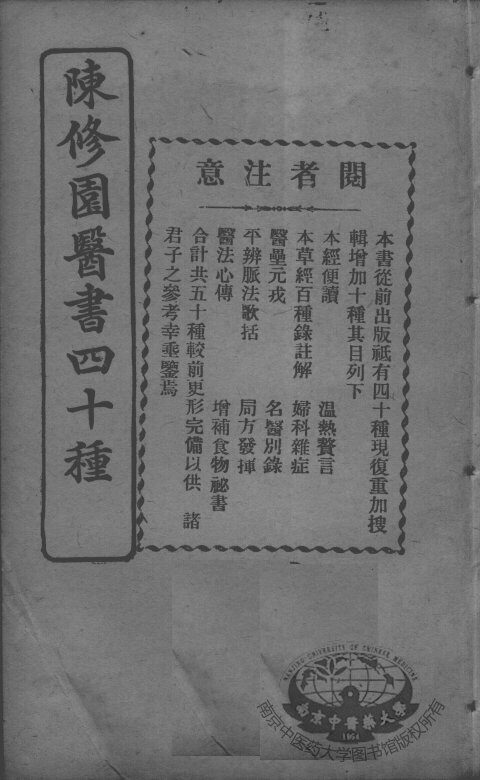 陳修園醫書四十種
閱者注意
本書從前出版祇有四十種現復重加搜
輯增加十種其目列下
本經便讀　溫熱贅言
本草經百種錄註解　婦科雜症
醫壘元戎　名醫別錄
平辨脈法歌括　局方發揮
醫法心傳　增補食物祕書
合計共五十種較前更形完備以供　諸
君子之參考幸垂鑒焉
NANJING UNIVERSITY OF CHINESE MEDICINE
南京中醫藥大學
1954
南京中医药大学图书馆版权所有